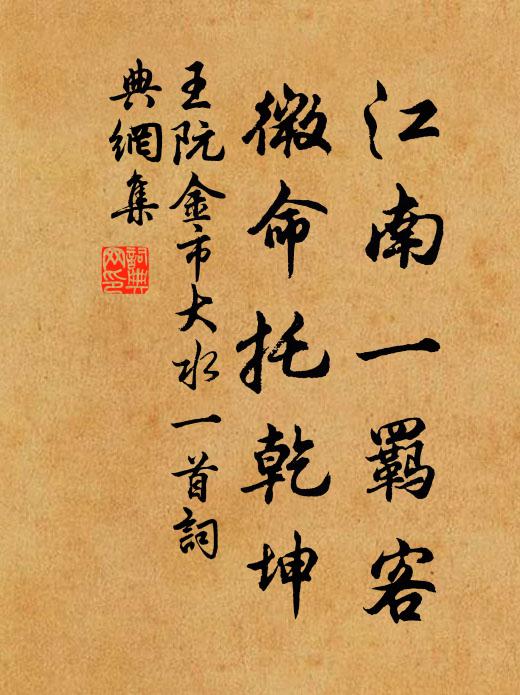 江南一羈客
微命托乾坤
王阮金市大水一首詞
典網集
詞典
网印